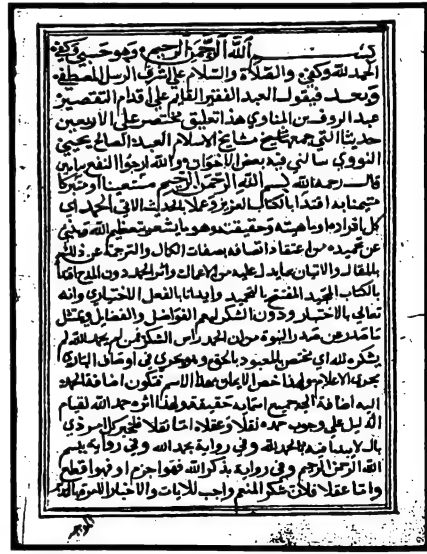 بسم الله الرحمن الرحيم وهو حسبي وكفى
الحمد لله وكفى والصلاة والسلام على اشرف الرسل المصطفى
وبعد فيقول العبد الفقير القائم على اقدام التقصير
عبد الروف بن المناوي هذا تعليق مختصر على الاربعين
حديثا التي جمعها شيخ مشايخ الاسلام العبد الصالح يحيى
النووي سالني فيه بعض الاخوان والله ارجوا النفع به امين
قال رحمه الله بسم الله الرحمن الرحيم مستعينا او متبركا
متيمنا به اقتدا بالكتاب العزيز وعملا بالحديث الاتي الحمد اي
كل افراده او ماهيته وحقيقته وهو ما يشعر بتعظيم الله
عن تحميده من اعتقاد اتصافه بصفات الكمال والترجمة عن ذلك
بالمقال والاتيان بما يدل عليه من الاعمال واثر الحمد دون المدح اقتدا
بالكتاب المجيد المفتتح بالتحميد وايذانا بالفعل الاختياري وانه
تعالى بالاختيار ودون الشكر ليعم الفواضل والفضايل
ما صدر عن صدر النبوة من ان الحمد راس الشكر فمن لم يحمد الله لم
يشكره لله اي مختص للمعبود بالحق وهو يجري في اوصاف الباري
مجرى الاعلام ولهذا خص الايمان بهذا الاسم فتكون اضافة الحمد
اليه اضافة الى جميع اسمايه حقيقة ولهذا اثره حمد الله لقيام
الدليل على وجوب حمده نقلا وعقلا اما نقلا فلخبر كل امر ذي
بال لا يبدا فيه بالحمد لله وفي رواية بحمد الله وفي رواية ببسم
الله الرحمن الرحيم وفي رواية بذكر الله فهو اجزم او فهو اقطع
واما عقلا فلان شكر المنعم واجب للايات والاخبار